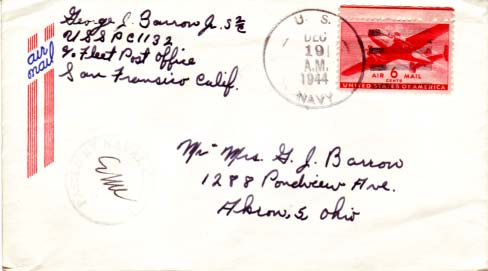 George J. Barrow Jr. S 2/c
U.S.S PC 1132
c/o Fleet Post Office
San Fransico Calif.
air
mail
U. S.
DEC
19
A.M.
1944
NAVY
AIR 6 MAIL
CENTS
UNITED STATES OF AMERICA
PASSED BY NAVAL
Mr Mrs. G. J. Barrow
1288 Pondview Ave.
Akron, 5, Ohio